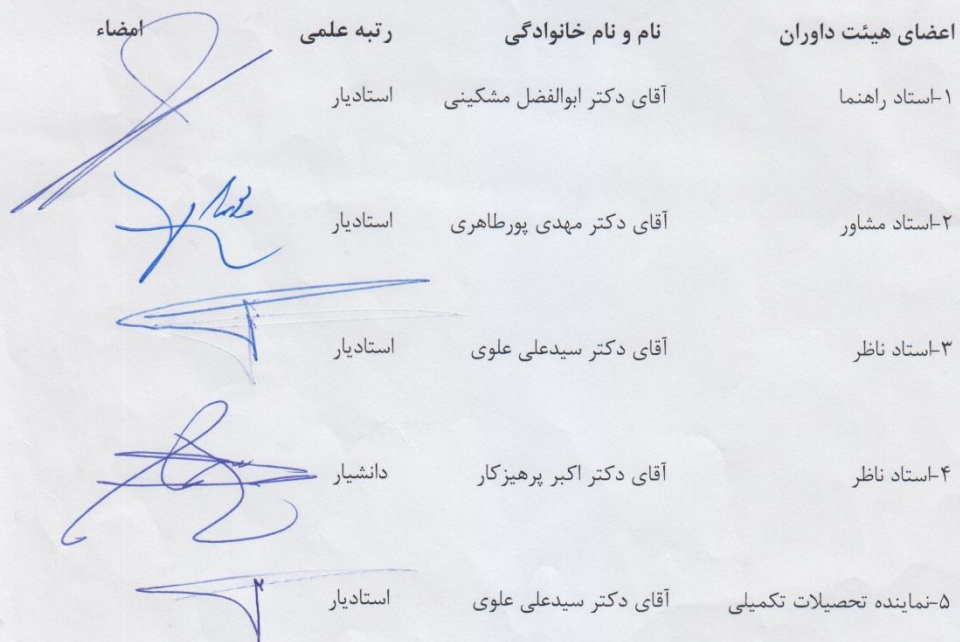 اعضای هیئت داوران نام و نام خانوادگی رتبه علمی امضاء
۱-استاد راهنما آقای دکتر ابوالفضل مشکینی استادیار
۲-استاد مشاور آقای دکتر مهدی پورطاهری استادیار
۳-استاد ناظر آقای دکتر سیدعلی علوی استادیار
۴-استاد ناظر آقای دکتر اکبر پرهیزکار دانشیار
۵-نماینده تحصیلات تکمیلی آقای دکتر سیدعلی علوی استادیار